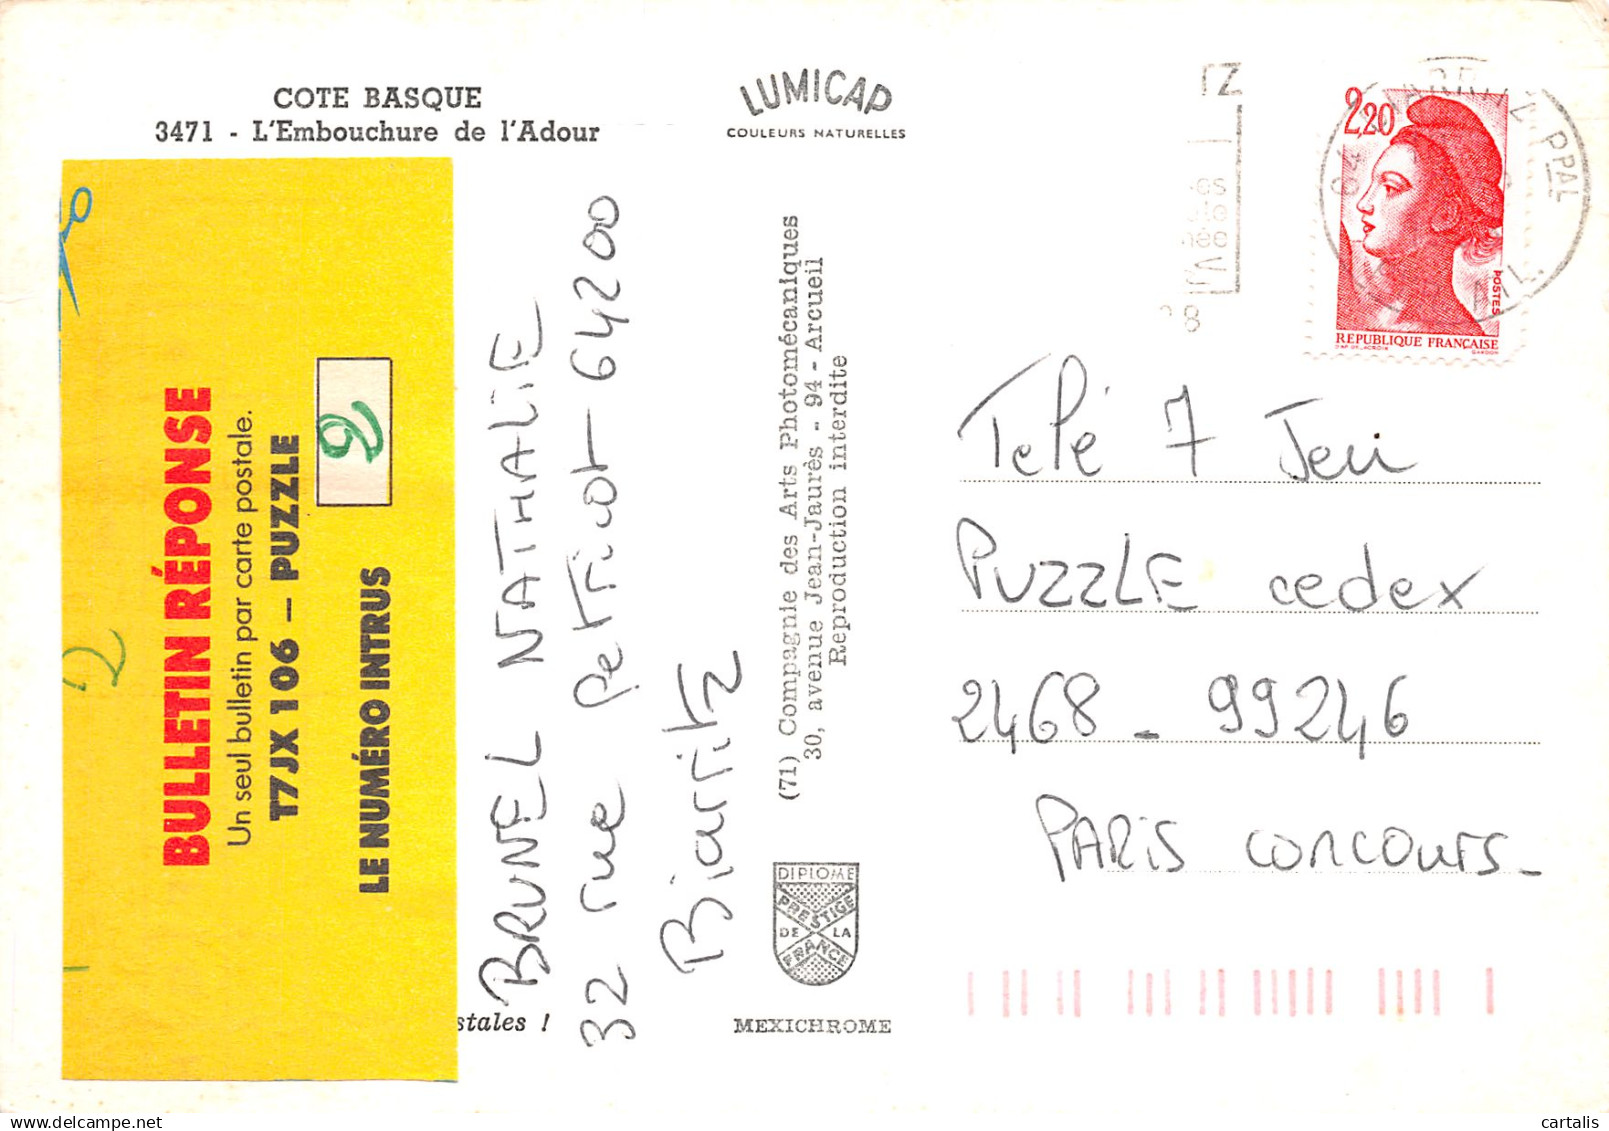 COTE BASQUE
3471 - L'Embouchure de l'Adour
LUMICAP
COULEURS NATURELLES
2,20
POSTES
REPUBLIQUE FRANÇAISE
PPAL
BULLETIN RÉPONSE
Un seul bulletin par carte postale.
T7JX 106 – PUZZLE
LE NUMÉRO INTRUS
2
2
BRUNEL NATHALIE
32 rue Petricot 64200
Biarritz
(71) Compagnie des Arts Photomécaniques
30, avenue Jean-Jaurès - 94 - Arcueil
Reproduction interdite
Télé 7 Jeu
PUZZLE cedex
2468 - 99246
PARIS CONCOURS -
DIPLOME
PRESTIGE
DE LA
FRANCE
stales !
MEXICHROME
cartalis